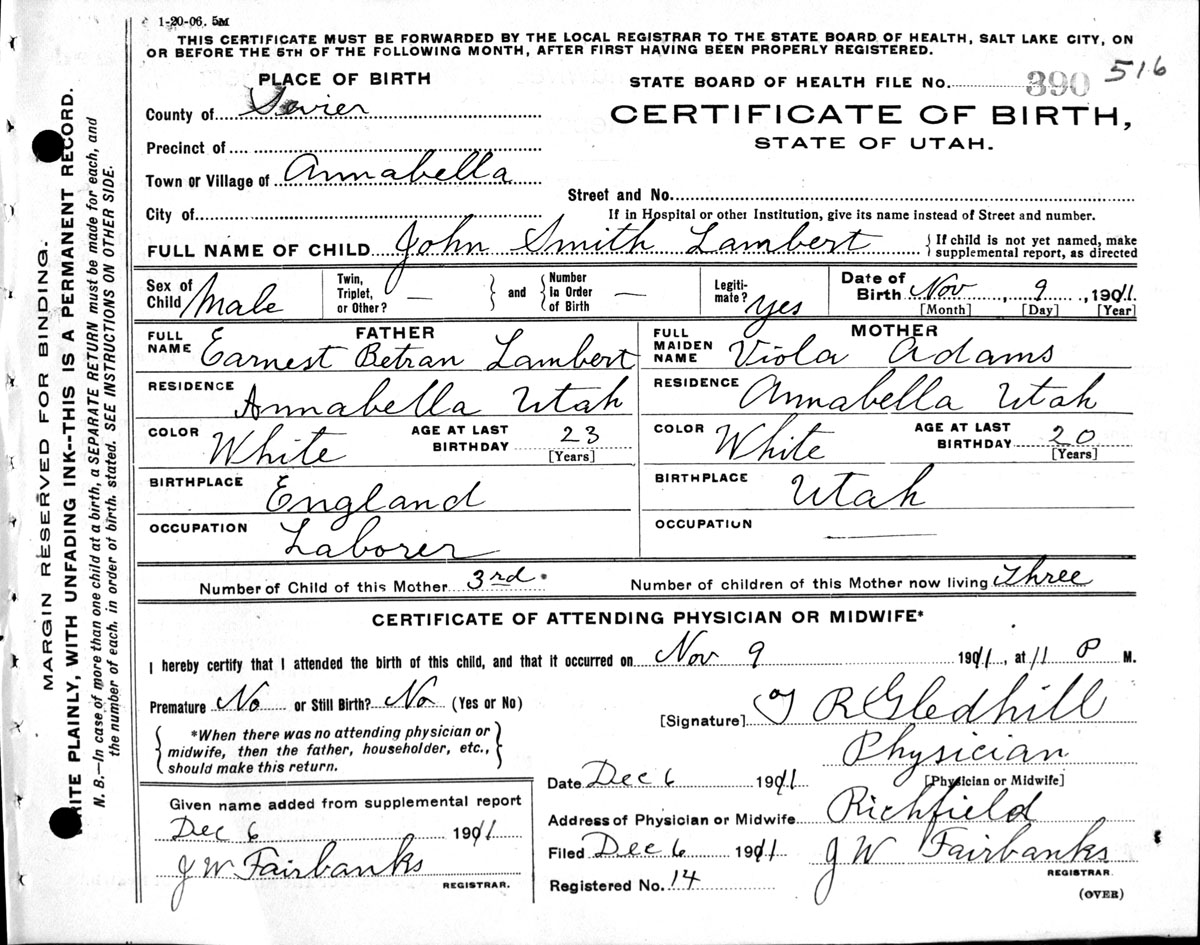 1-20-06. 5M
THIS CERTIFICATE MUST BE FORWARDED BY THE LOCAL REGISTRAR TO THE STATE BOARD OF HEALTH, SALT LAKE CITY, ON
OR BEFORE THE 5TH OF THE FOLLOWING MONTH, AFTER FIRST HAVING BEEN PROPERLY REGISTERED.
PLACE OF BIRTH
STATE BOARD OF HEALTH FILE No. 390 516
County of Sevier
CERTIFICATE OF BIRTH,
STATE OF UTAH.
Precinct of
Town or Village of Annabella
Street and No.
City of
If in Hospital or other Institution, give its name instead of Street and number.
FULL NAME OF CHILD John Smith Lambert { If child is not yet named, make
supplemental report, as directed
Sex of Child Male
Twin, Triplet, or Other? —
and
Number In Order of Birth —
Legiti-mate? yes
Date of Birth Nov, 9, 1911
[Month] [Day] [Year]
FATHER
FULL NAME Earnest Betran Lambert
MOTHER
FULL MAIDEN NAME Viola Adams
RESIDENCE Annabella Utah
RESIDENCE Annabella Utah
COLOR White AGE AT LAST BIRTHDAY 23 [Years]
COLOR White AGE AT LAST BIRTHDAY 20 [Years]
BIRTHPLACE England
BIRTHPLACE Utah
OCCUPATION Laborer
OCCUPATION —
Number of Child of this Mother 3rd. Number of children of this Mother now living Three
CERTIFICATE OF ATTENDING PHYSICIAN OR MIDWIFE*
I hereby certify that I attended the birth of this child, and that it occurred on Nov 9 1911, at 11 P M.
Premature No or Still Birth? No (Yes or No)
[Signature] J R Gledhill
Physician
[Physician or Midwife]
*When there was no attending physician or
midwife, then the father, householder, etc.,
should make this return.
Date Dec 6 1911
Address of Physician or Midwife Richfield
Given name added from supplemental report
Dec 6 1911
J W Fairbanks
REGISTRAR.
Filed Dec 6 1911 J W Fairbanks
REGISTRAR.
Registered No. 14
(OVER)
MARGIN RESERVED FOR BINDING.
WRITE PLAINLY, WITH UNFADING INK--THIS IS A PERMANENT RECORD.
N. B.—In case of more than one child at a birth, a SEPARATE RETURN must be made for each, and
the number of each, in order of birth, stated. SEE INSTRUCTIONS ON OTHER SIDE.